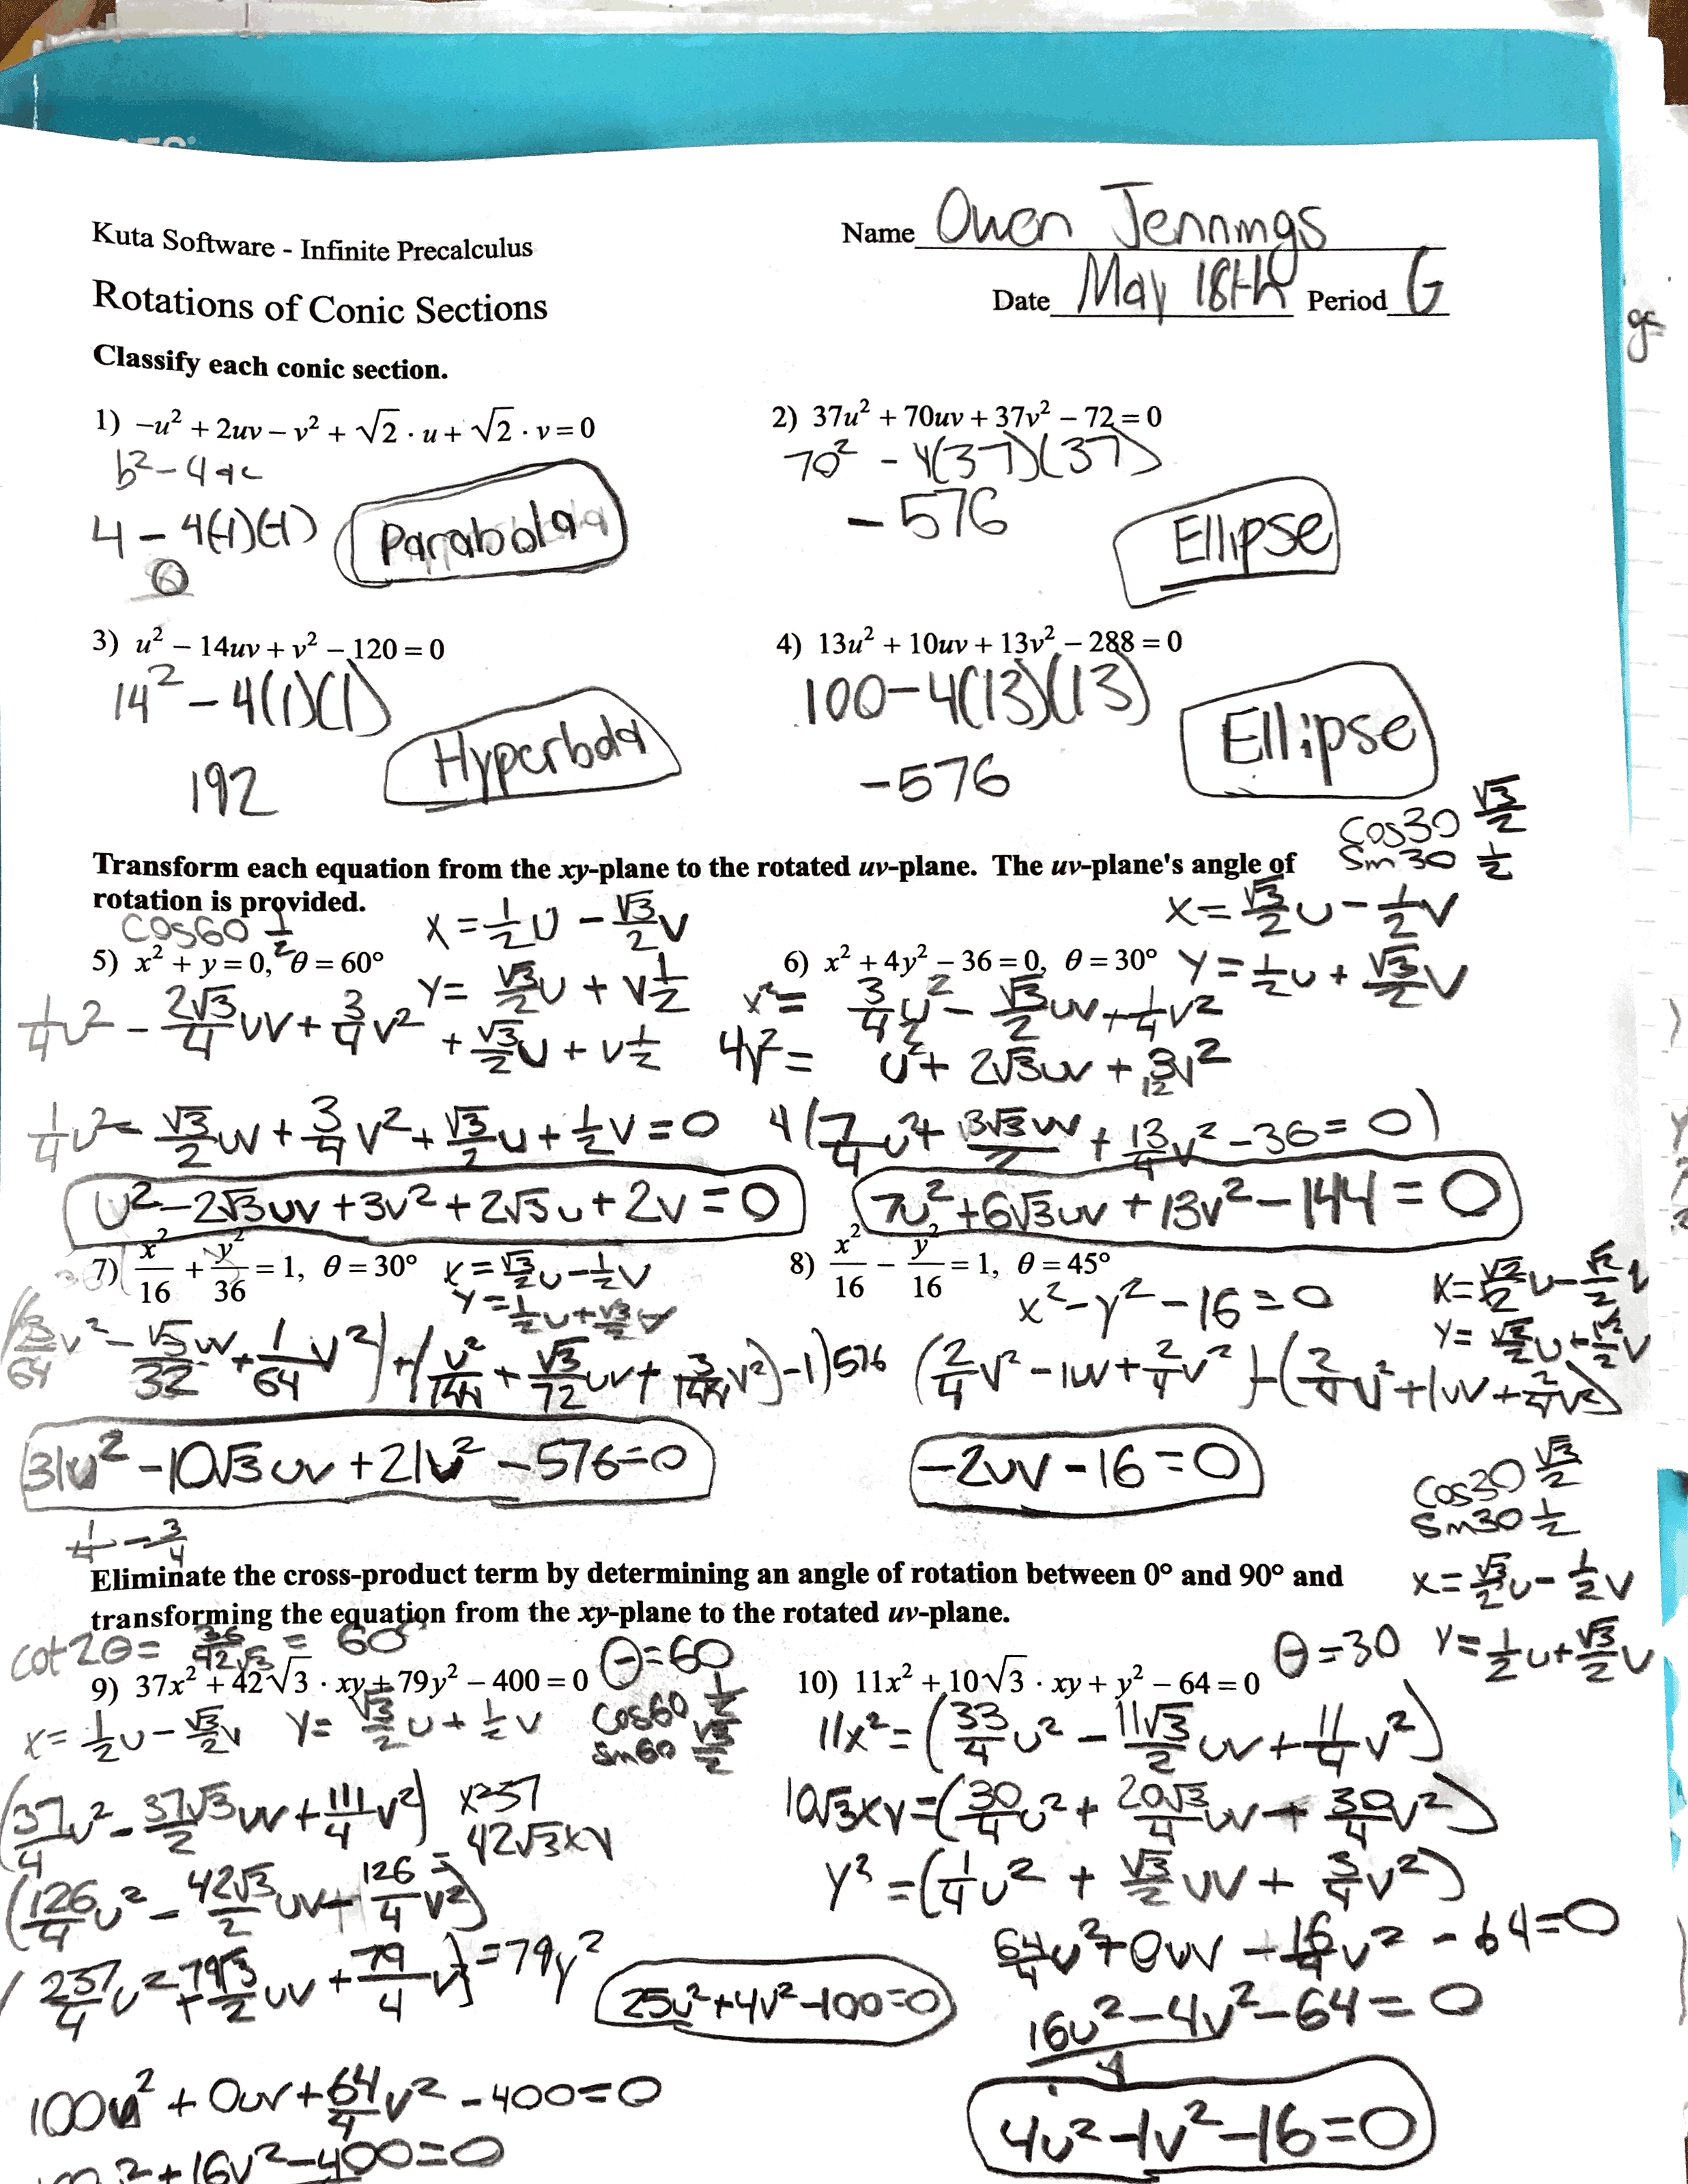 Kuta Software - Infinite Precalculus
Name Owen Jennings
Rotations of Conic Sections
Date May 18th Period G
Classify each conic section.
1) −u² + 2uv − v² + √2 · u + √2 · v = 0
b² − 4ac
4 − 4(-1)(-1)
0
Parabola
2) 37u² + 70uv + 37v² − 72 = 0
70² − 4(37)(37)
−576
Ellipse
3) u² − 14uv + v² − 120 = 0
14² − 4(1)(1)
192
Hyperbola
4) 13u² + 10uv + 13v² − 288 = 0
100−4(13)(13)
−576
Ellipse
cos30 √3/2
Sin30 1/2
Transform each equation from the xy-plane to the rotated uv-plane. The uv-plane's angle of
rotation is provided.
cos60 1/2
x = 1/2 u − √3/2 v
5) x² + y = 0, θ = 60°
y = √3/2 u + v 1/2
1/4 u² − 2√3/4 uv + 3/4 v² + √3/2 u + v 1/2
1/4 u² − √3/2 uv + 3/4 v² + √3/2 u + 1/2 v = 0
u² − 2√3uv + 3v² + 2√3u + 2v = 0
x = √3/2 u − 1/2 v
6) x² + 4y² − 36 = 0, θ = 30°
y = 1/2 u + √3/2 v
x² = 3/4 u² − √3/2 uv + 1/4 v²
4y² = u² + 2√3uv + 3v²
4(7/4 u² + 3√3uv/2 + 13/4 v² − 36 = 0)
7u² + 6√3uv + 13v² − 144 = 0
7) x²/16 + y²/36 = 1, θ = 30°
x = √3/2 u − 1/2 v
y = 1/2 u + √3/2 v
(3/64 v² − √3/32 uv + 1/64 v²) + (u²/144 + √3/72 uv + 3/144 v²) − 1) 576
31u² − 10√3uv + 21v² − 576 = 0
1/4 − 3/4
8) x²/16 − y²/16 = 1, θ = 45°
x² − y² − 16 = 0
x = √2/2 u − √2/2 v
y = √2/2 u + √2/2 v
(2/4 v² − 1uv + 2/4 v²) − (2/4 u² + 1uv + 2/4 v²)
−2uv − 16 = 0
cos30 √3/2
Sin30 1/2
Eliminate the cross-product term by determining an angle of rotation between 0° and 90° and
transforming the equation from the xy-plane to the rotated uv-plane.
x = √3/2 u − 1/2 v
y = 1/2 u + √3/2 v
cot2θ = 36/42√3 = 60°
9) 37x² + 42√3 · xy + 79y² − 400 = 0
θ = 60
cos60 1/2
sin60 √3/2
x = 1/2 u − √3/2 v y = √3/2 u + 1/2 v
(37/4 u² − 37√3/2 uv + 111/4 v²) x²37
42√3xy
(126/4 u² − 42√3/2 uv + 126/4 v²) =
(237/4 u² + 79√3/2 uv + 79/4 v²) = 79y²
25u² + 4v² − 100 = 0
100u² + 0uv + 64/4 v² − 400 = 0
+ 16v² − 400 = 0
10) 11x² + 10√3 · xy + y² − 64 = 0
θ = 30
11x² = (33/4 u² − 11√3/2 uv + 11/4 v²)
10√3xy = (30/4 u² + 20√3/4 uv − 30/4 v²)
y² = (1/4 u² + √3/2 uv + 3/4 v²)
64/4 u² + 0uv − 16/4 v² − 64 = 0
16u² − 4v² − 64 = 0
4
4u² − 1v² − 16 = 0